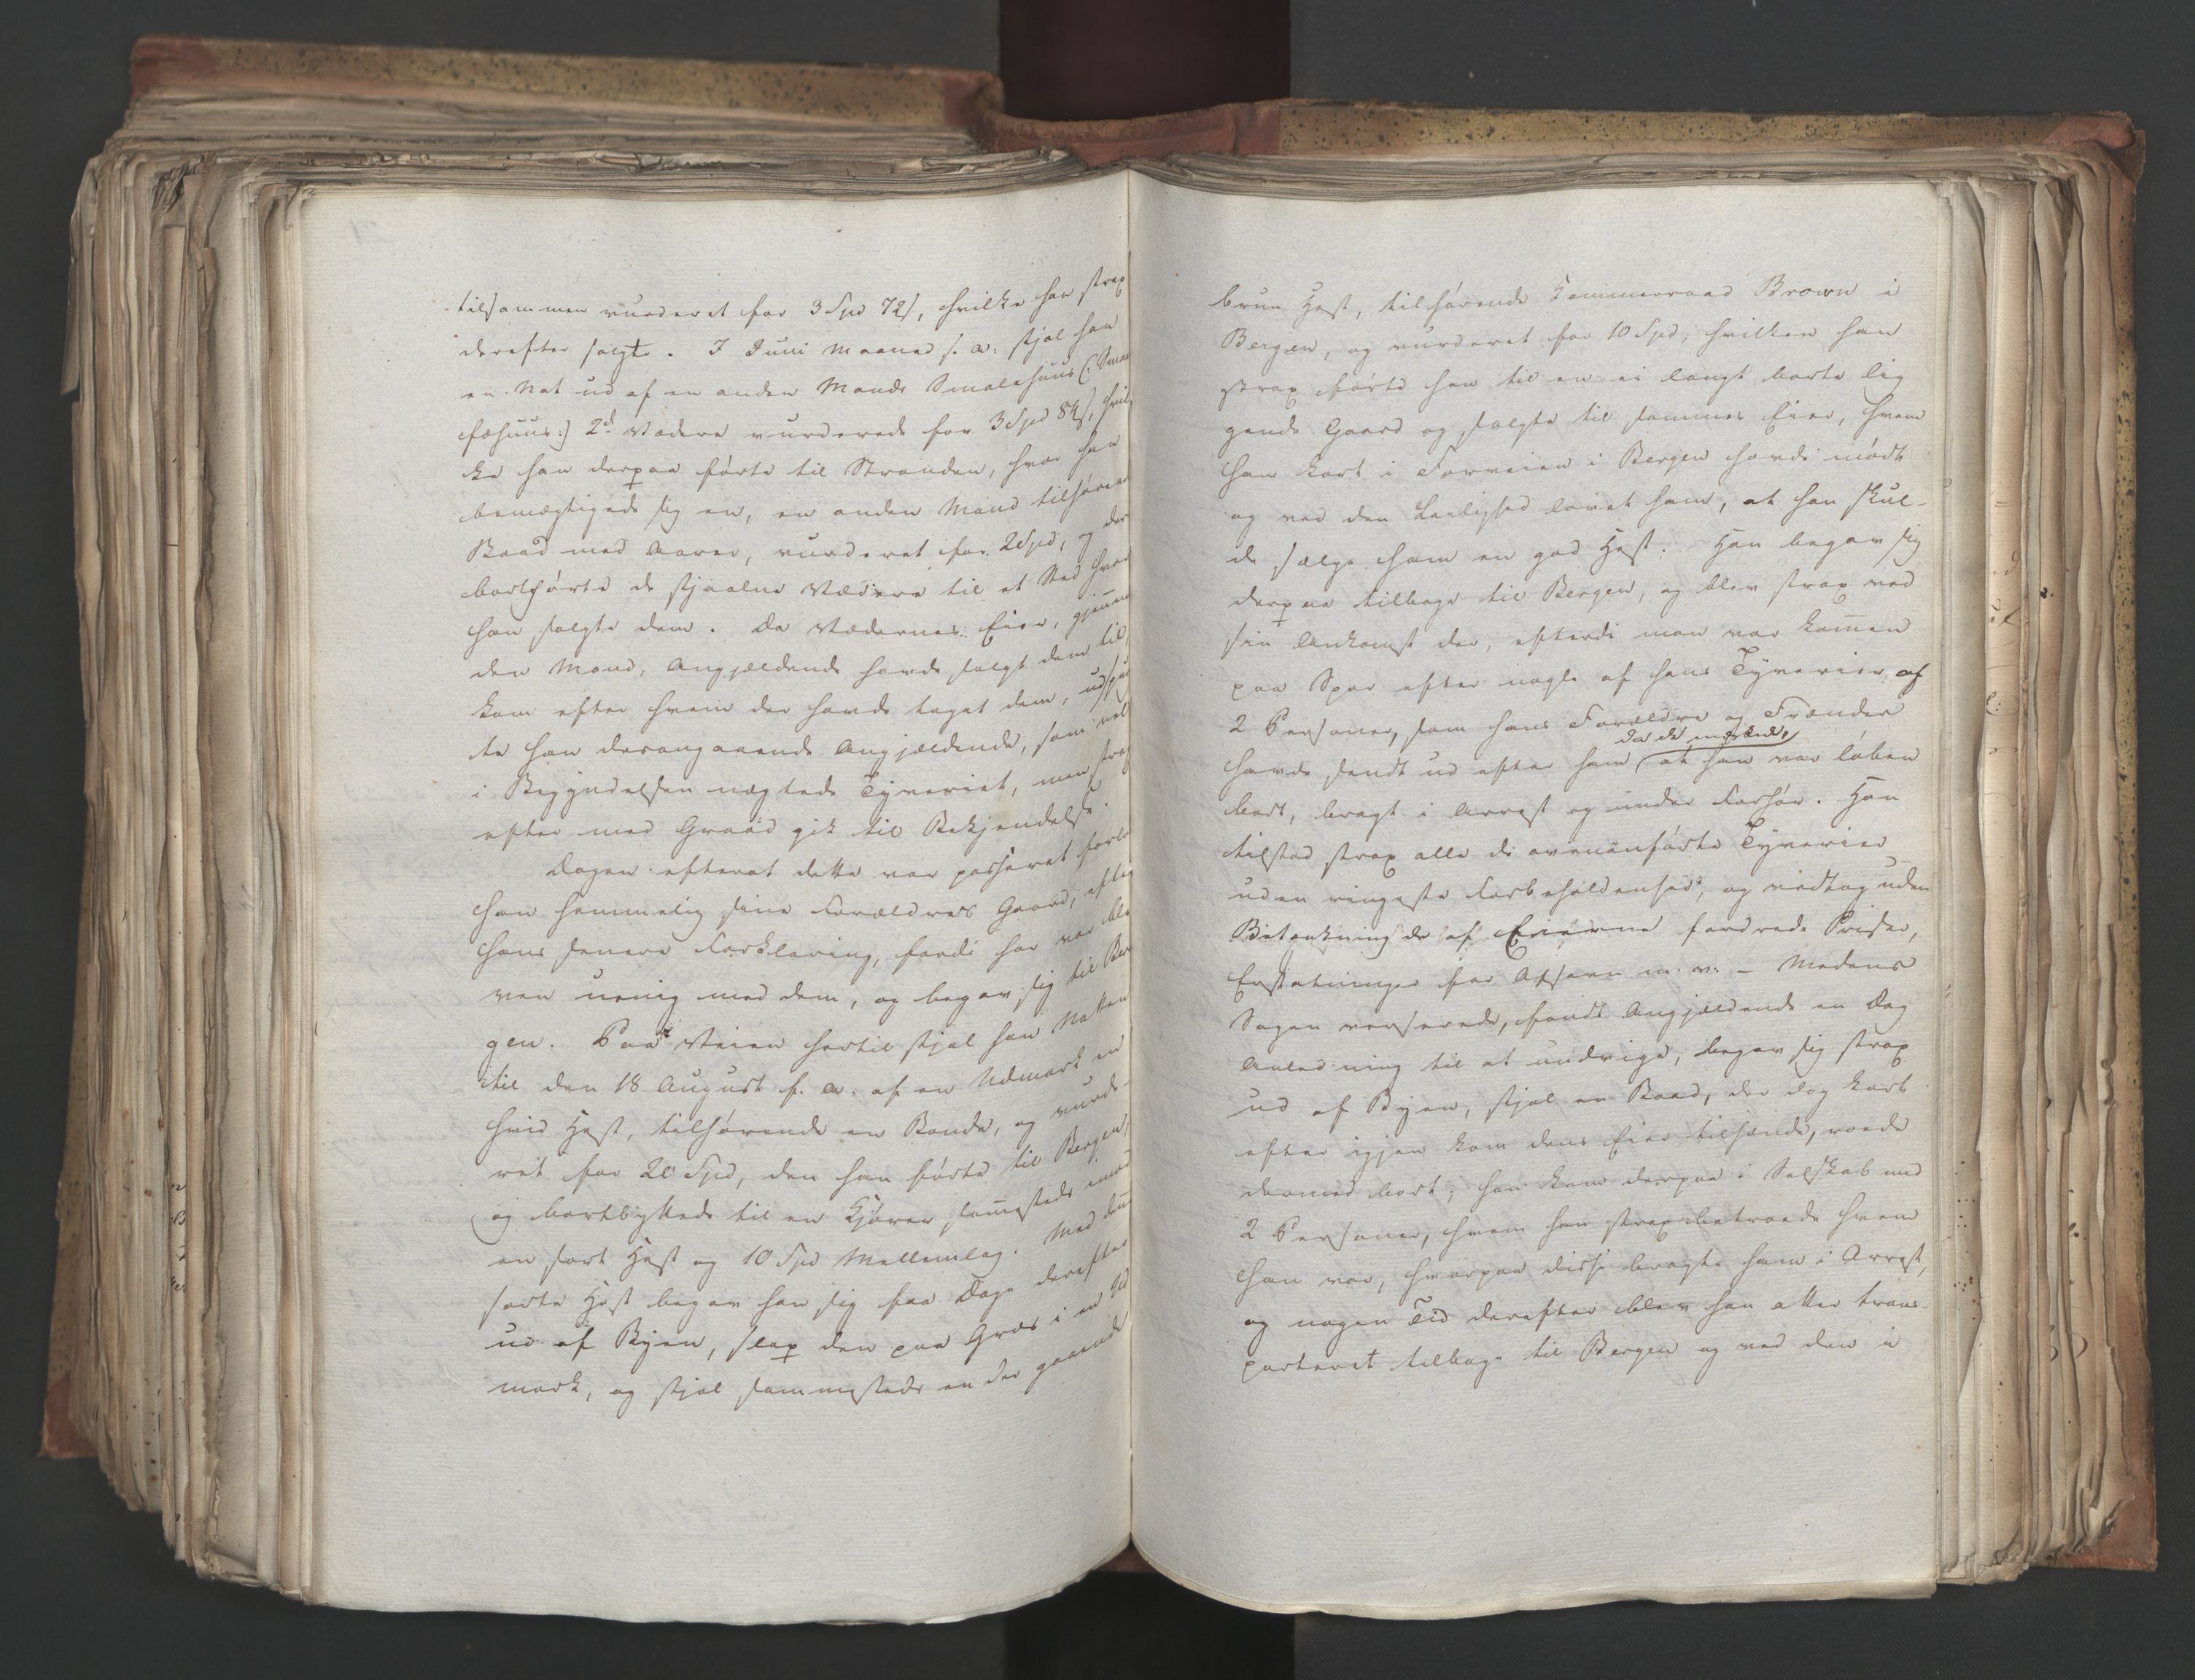 tilsammen vurderet for 3 Spd 72 s, hvilke han strax
derefter solgte. I Juni Maaned s. a. stjal han
en Nat ud af en anden Mands Smalehuus (: Smaa
fæhuus:) 2de Vædere vurderede for 3 Spd 84 s, hvil
ke han derpaa førte til Stranden, hvor han
bemægtigede sig en, en anden Mand tilhørende
Baad med Aarer, vurderet for 2 Spd, og der
bortførte de stjaalne Vædere til et Sted hvor
han solgte dem. Da Vædernes Eier, gjennem
den Mand, Angjældende havde solgt dem til,
kom efter hvem der havde taget dem, udspur
te han desangaaende Angjældende, som vel
i Begyndelsen nægtede Tyveriet, men strax
efter med Graad gik til Bekjendelse.
Dagen efterat dette var passeret forlod
han hemmelig sine Forældres Gaard, efter
hans senere Forklaring, fordi han var ble
ven uenig med dem, og begav sig til Ber
gen. Paa Veien hertil stjal han Natten
til den 18 August s. a. af en Udmark en
hvid Hest, tilhørende en Bonde, og vurde-
ret for 20 Spd, den han førte til Bergen,
og bortbyttede til en Kjører sammesteds mod
en sort Hest og 10 Spd Mellemlag. Med den
sorte Hest begav han sig faa Dage derefter
ud af Byen, slap den paa Græs i en Ud
mark, og stjal sammesteds en der gaaende
brun Hest, tilhørende Kammerraad Brown i
Bergen, og vurderet for 10 Spd, hvilken han
strax førte hen til en ei langt borte lig
gende Gaard og solgte til sammes Eier, hvem
han kort i Forveien i Bergen havde mødt
og ved den Leilighed lovet ham, at han skul-
de sælge ham en god Hest. Han begav sig
derpaa tilbage til Bergen, og blev strax ved
sin Ankomst der, efterdi man var kommen
paa Spor efter nogle af hans Tyverier, af
2 Personer, som hans Forældre og Frænder
da de mærkede,
havde sendt ud efter ham at han var løben
bort, bragt i Arrest og under Forhør. Han
tilstod strax alle de ovenanførte Tyverier
uden ringeste Forbeholdenhed, og vedtog uden
Betænkning de af Eierne fordrede Priser,
Erstatninger for Afsavn m. v. - Medens
Sagen verserede, fandt Angjældende en Dag
Anledning til at undvige, begav sig strax
ud af Byen, stjal en Baad, der dog kort
efter igjen kom dens Eier tilhænde, roede
dermed bort; han kom derpaa i Selskab med
2 Personer, hvem han strax betroede hvem
han var, hvorpaa disse bragte ham i Arrest,
og nogen Tid derefter blev han atter trans-
porteret tilbage til Bergen og ved den i